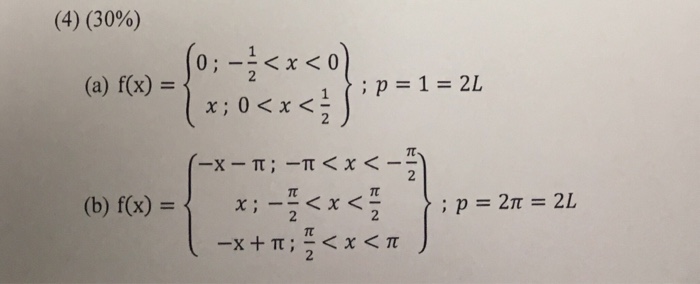 (4) (30%)
(a) f(x) = {0 ; −1/2 < x < 0
x ; 0 < x < 1/2} ; p = 1 = 2L
(b) f(x) = {−x − π ; −π < x < −π/2
x ; −π/2 < x < π/2
−x + π ; π/2 < x < π} ; p = 2π = 2L